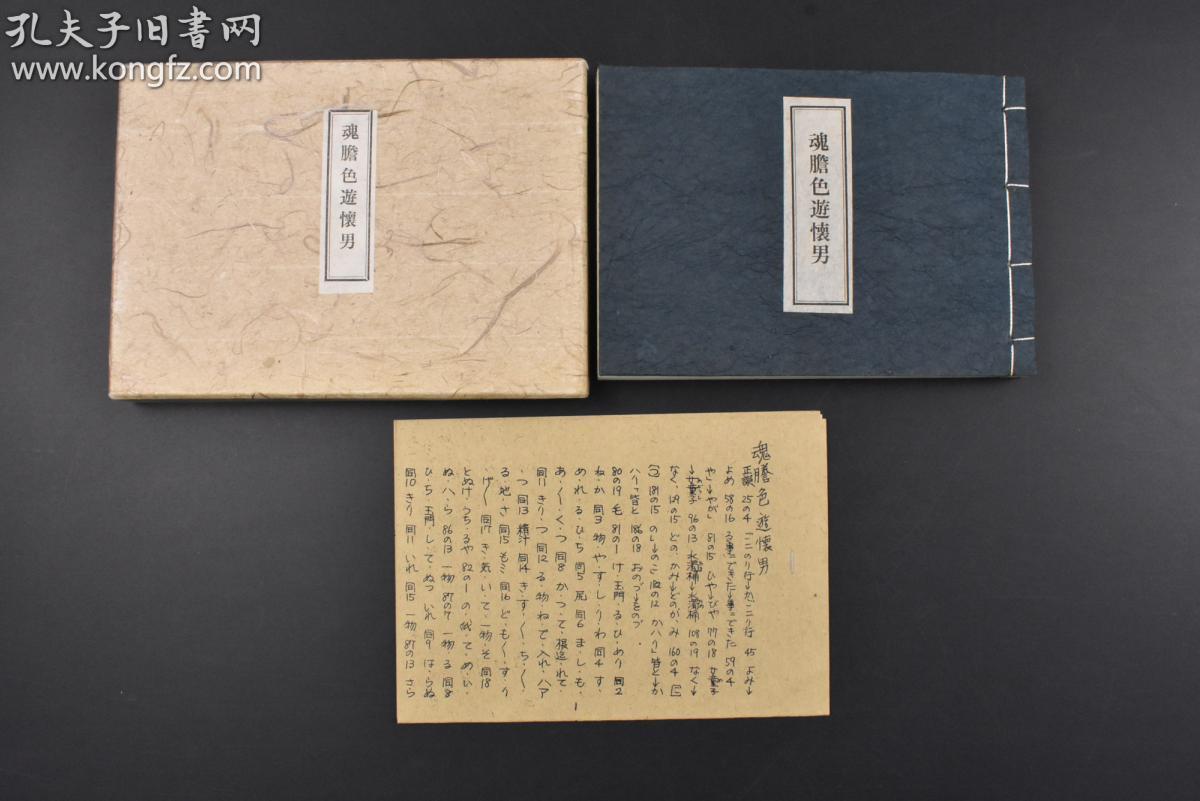 孔夫子旧书网
www.kongfz.com
魂膽色遊懐男
魂膽色遊懐男
魂膽色遊懐男
正誤 25の4 「二のり行→か、こり行 45 よみ→
よめ 58の16 う事=できた→事=できた 59の4
や」→やが」 81の15 ひや→びや 77の18 女童子
→女童子 96の13 水溜桶→水溜桶 108の19 なく→
なく、129の15 どの・かみ→どのが、み 160の4
181の15 の」→のこ 182の12 かハり」皆と→か
ハり「皆と 186の18 おのづ→をのづ・
80の19 毛 81の1 け・玉門・る・ひ・あり 同2
ね・か 同3 物・や・す・し・り・わ 同4 す・
め・れ・る・ひ・ち 同5 尻 同6 ま・し・も・
あ・〱・く・つ 同8 か・つ・て・根迄・れて
同11 きり・つ 同12 る・物・ね・で・入れ・ハア
・つ 同13 精汁 同14 き・す・く・ち・〱・
る・地・さ 同15 もミ 同16 ど・も・〱・す・り
・げ・〱 同17 き・気・い・て・一物・そ 同18
とぬけ・うち・るや 82の1 の・紙・て・め・い・
ぬ・ハ・ら 86の13 一物 87の7 一物・る 同8
ひ・ち・玉門・し・て・ぬつ いれ 同9 は・らぬ
同10 きり 同11 いれ 同15 一物 87の13 さら
1